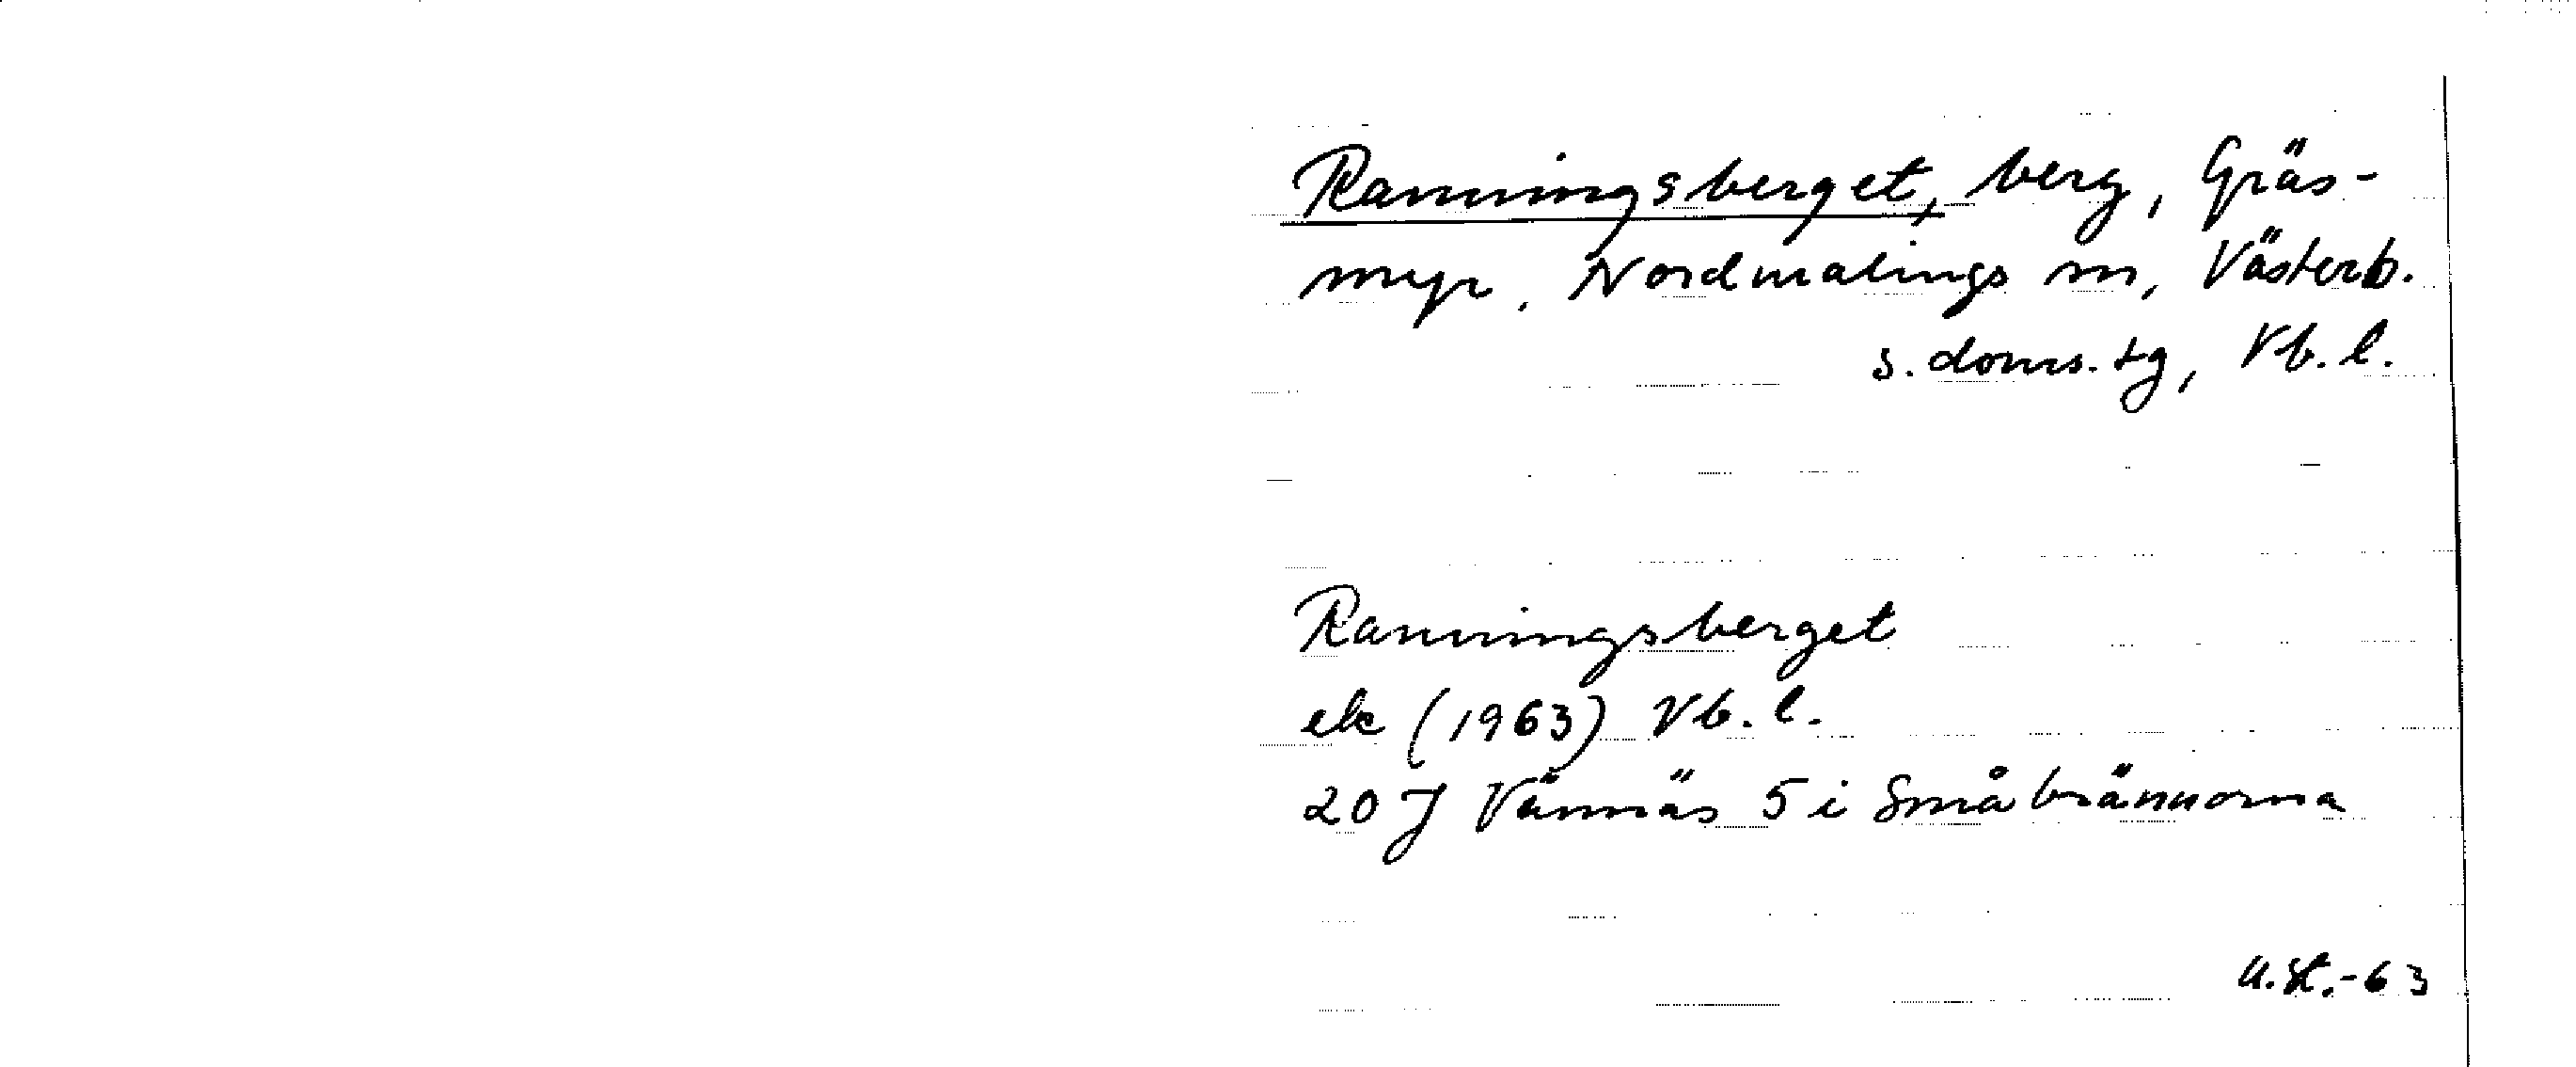 Ranningsberget, berg, Gräs-
myr. Nordmalings sn, Västerb.
s. doms. tg, Vb. l.
Ranningsberget
ek (1963) Vb. l.
20 J Vännäs 5 i Småbrännorna
U.St.-63